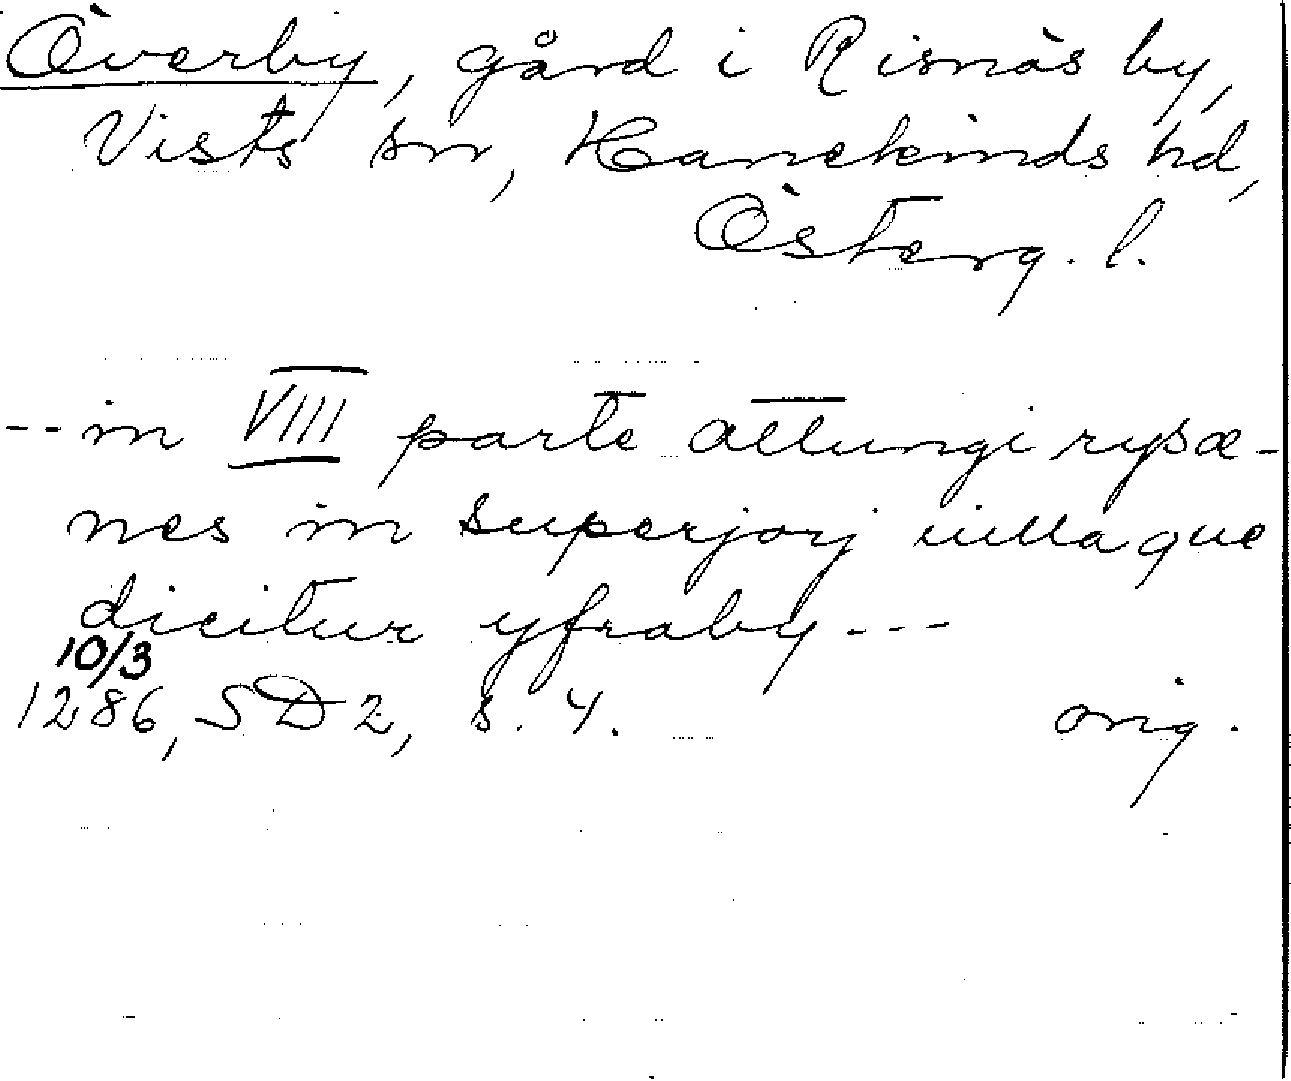 Överby, gård i Risnäs by,
Vists sn, Hanekinds hd,
Österg. l.
-- in VIII parte attungi rysæ-
nes in superjorj uilla que
dicitur yfraby ---
10/3
1286, SD 2, s. 4. orig.